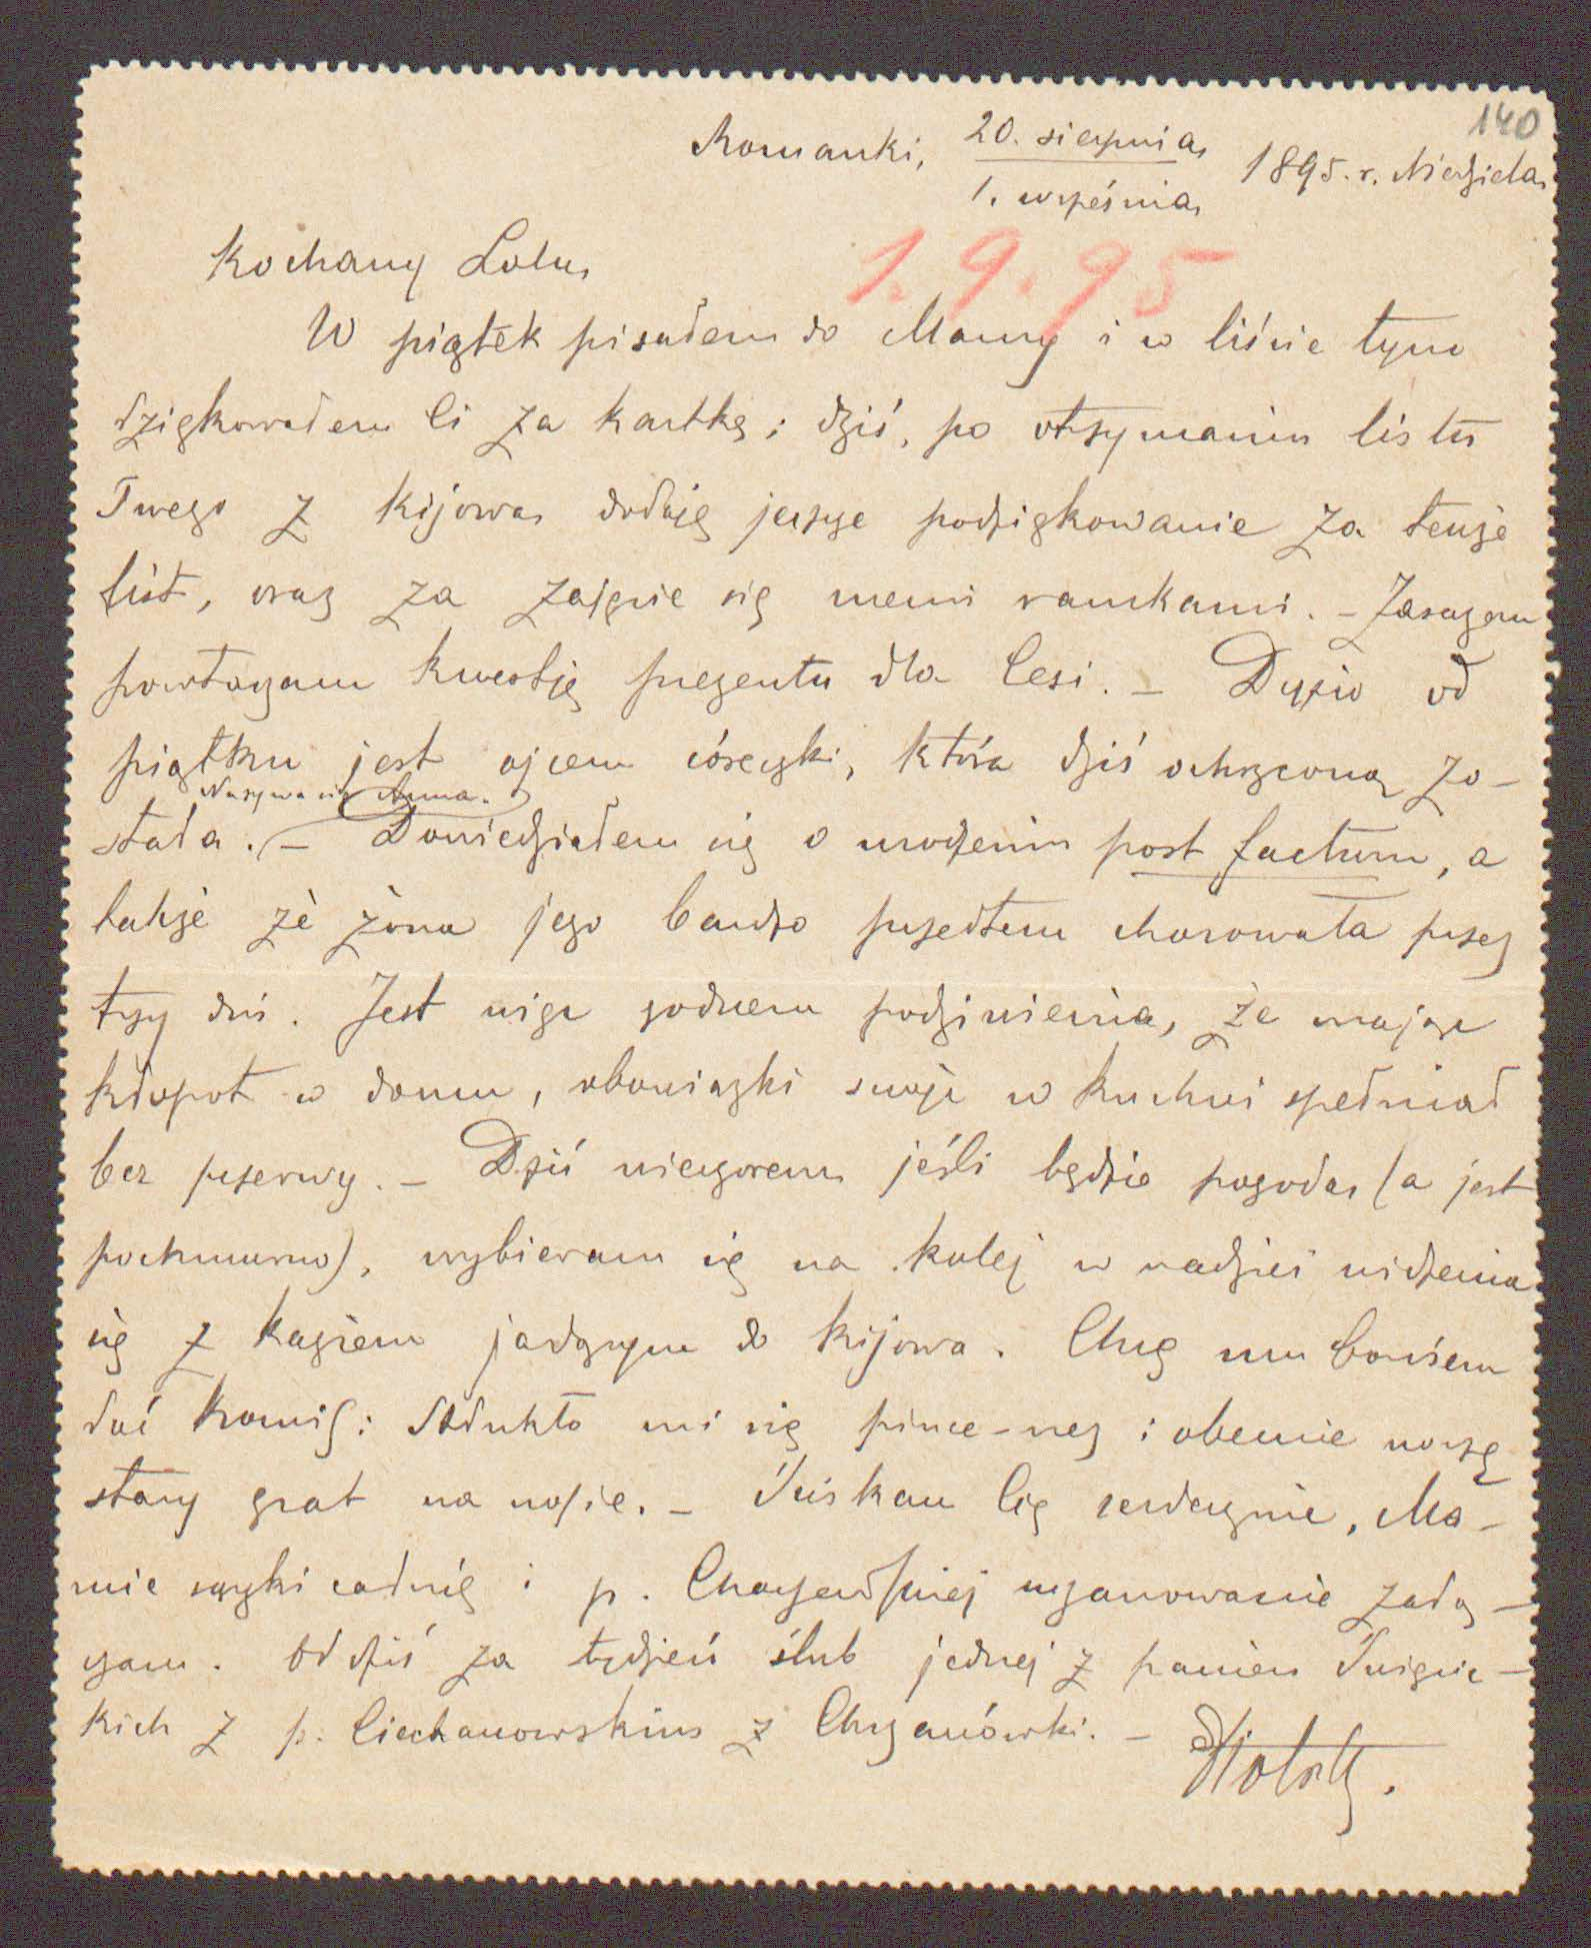 140
Romanki, 20. sierpnia / 1. września 1895. r. Niedziela
1.9.95
Kochany Lolu,
W piątek pisałem do Mamy i w liście tym
dziękowałem Ci za kartkę; dziś, po otrzymaniu listu
Twego z Kijowa dodaję jeszcze podziękowanie za tenże
list, oraz za zajęcie się memi ramkami. – Zarazem
powtarzam kwestję prezentu dla Cesi. – Dyzio od
piątku jest ojcem córeczki, która dziś ochrzconą zo-
Nazywa się Anna.
stała. – Dowiedziałem się o urodzeniu post factum, a
także że żona jego bardzo przedtem chorowała przez
trzy dni. Jest więc godnem podziwienia, że mając
kłopot w domu, obowiązki swoje w kuchni spełniał
bez przerwy. – Dziś wieczorem jeśli będzie pogoda (a jest
pochmurno), wybieram się na kolej w nadziei widzenia
się z Kaziem jadącym do Kijowa. Chcę mu bowiem
dać komis: stłukło mi się pince-nez i obecnie noszę
stary grat na nosie. – Ściskam Cię serdecznie, Ma-
mie rączki całuję i p. uszanowanie załą-
czam. Od dziś za tydzień ślub jednej z panien
kich z p. Ciechanowskim z Chrzanówki. –